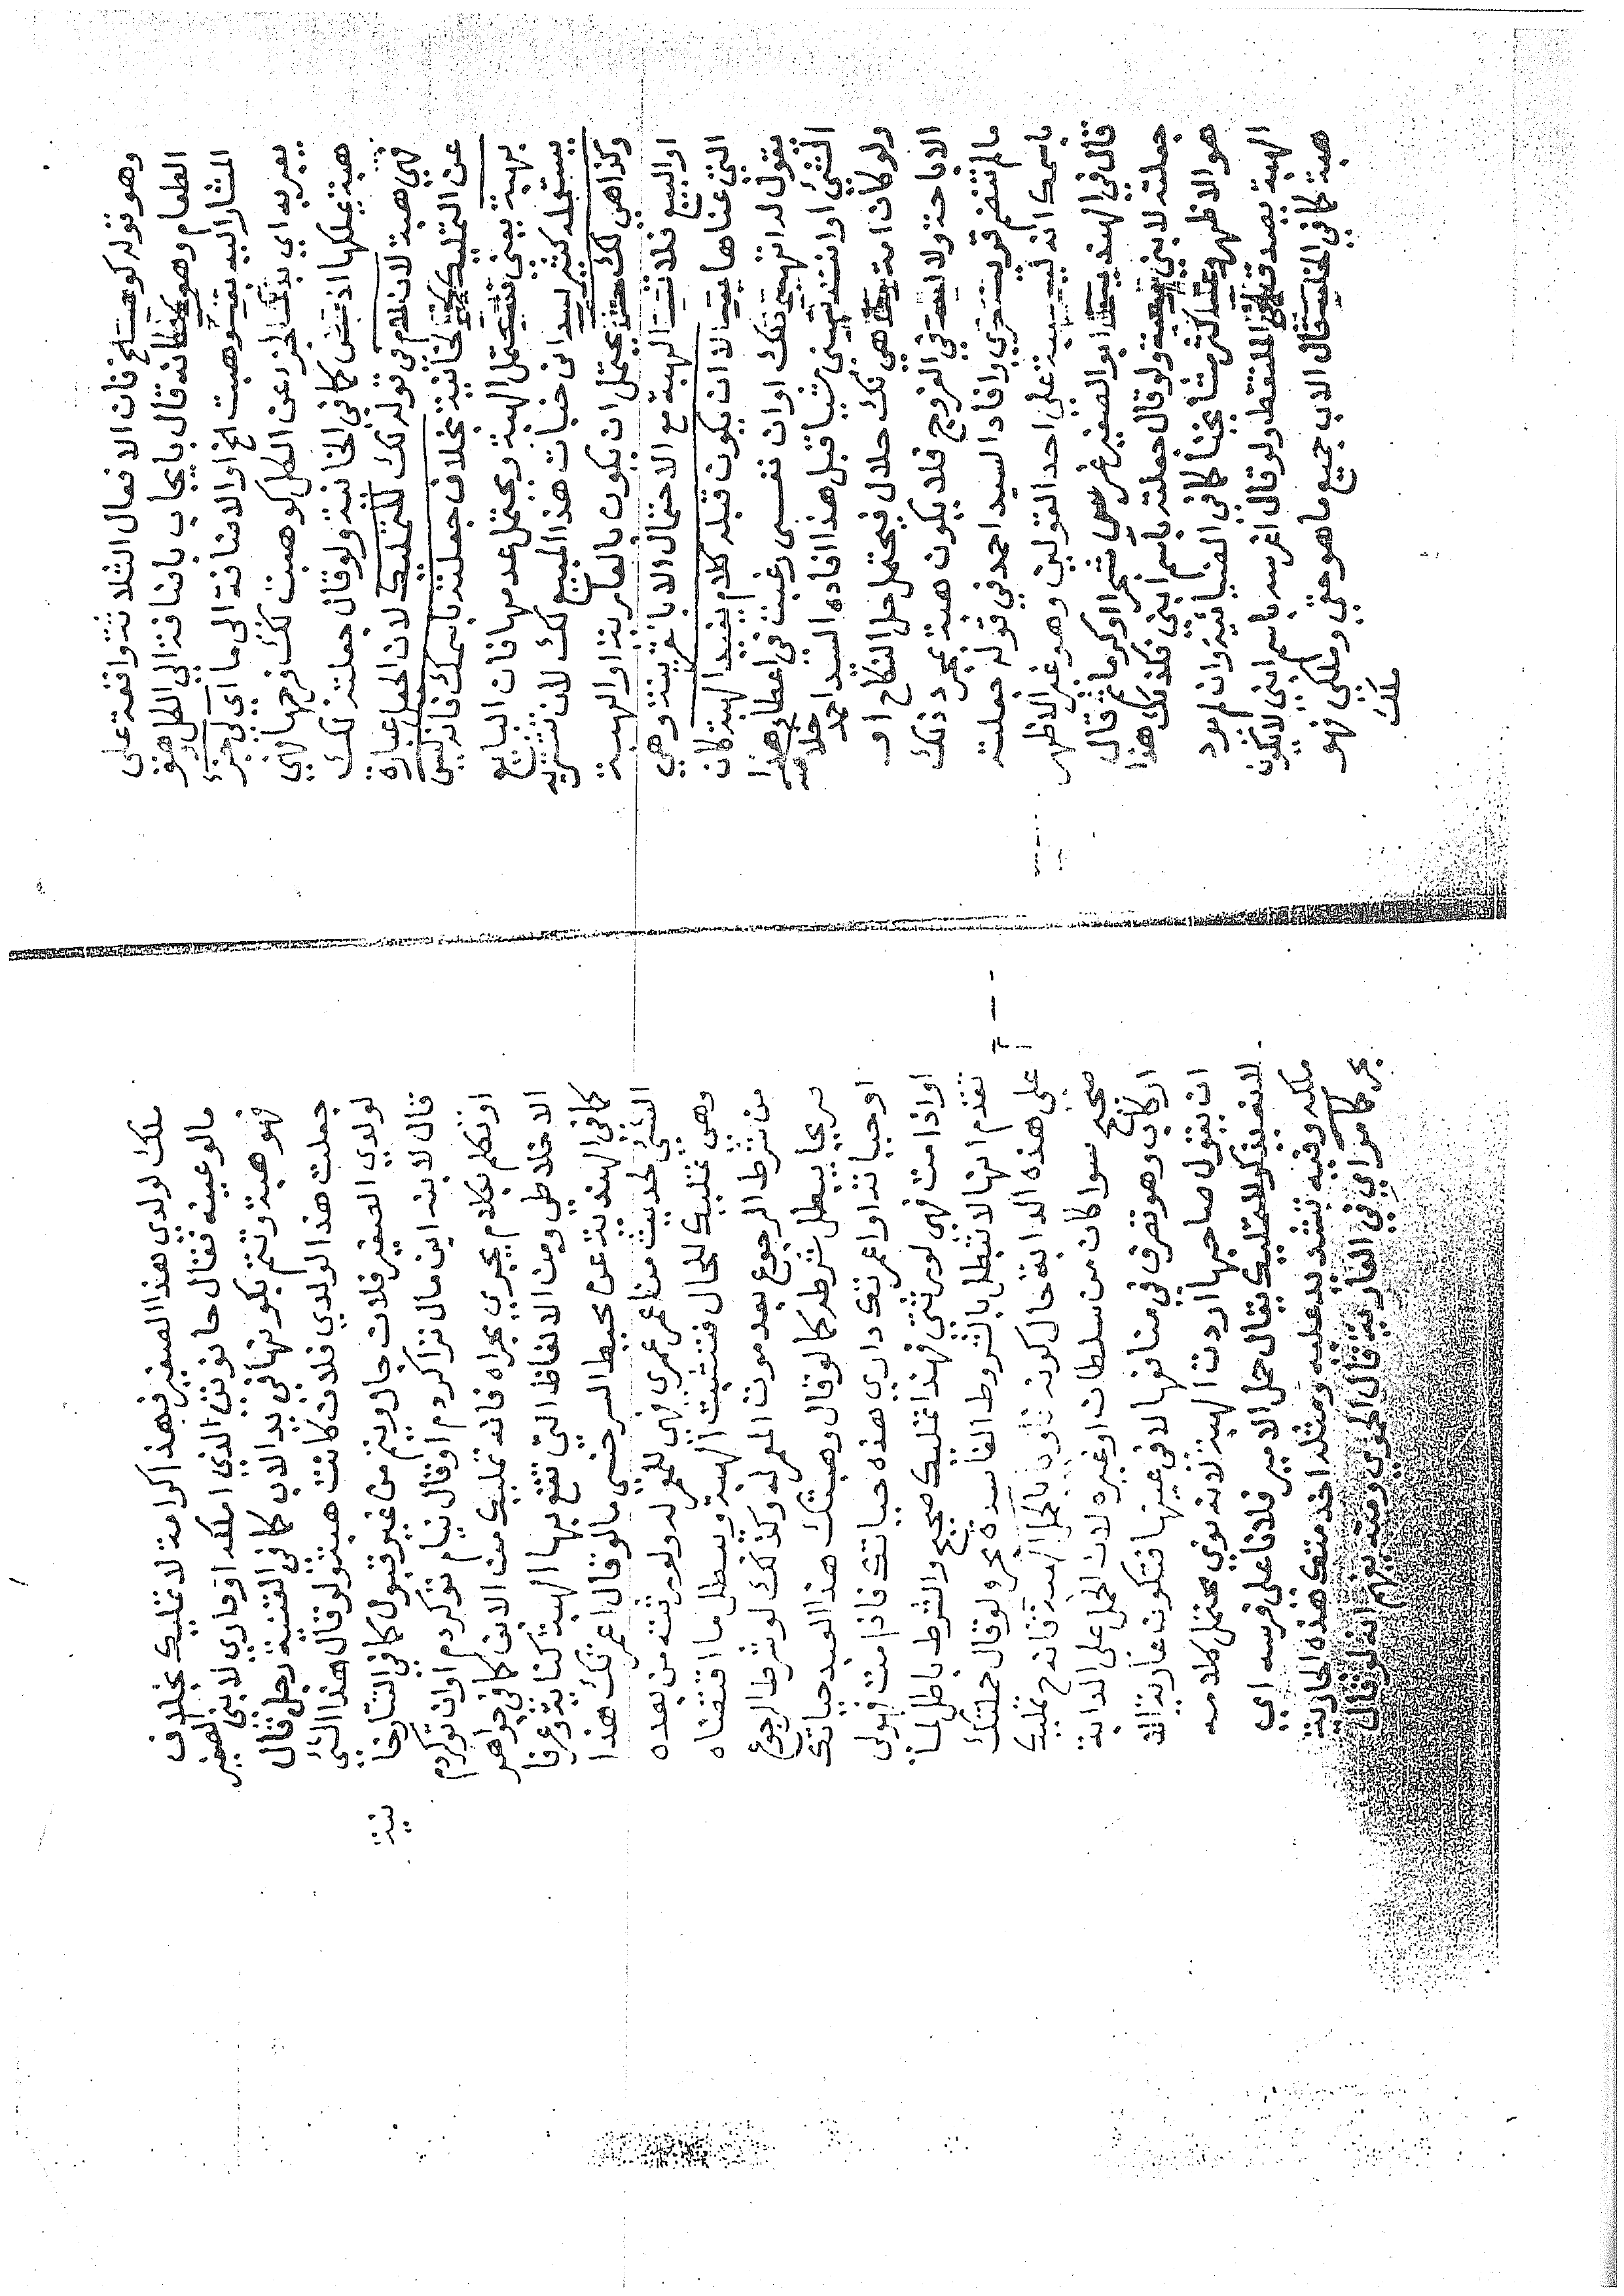 وهو قوله كوهبت الخ فان الافعال الثلاثة واقعة على
الطعام وهو كما انه قال بايجاب باضافة الى الكل وهو
المشار اليه بقوله وهبت الخ او الاضافة الى ما اي الى جزء
يعبر به اي بذلك الجزء عن الكل كوهبت لك فرجها فهي
هبة يملكها اذا قبض كما في الخانية ولو قال جعلته لك
فهي هبة لان اللام في قوله لك للتمليك لان الجعل عبارة
عن التمليك كما في الخانية بخلاف جعلته باسمك فانه ليس
بهبة يعني يحتمل الهبة ويحتمل عدمها فان البايع
يستعمله كثيرا في خيات هذا المبيع لك لان تشتريه
وكذا هي لك حلال يحتمل ان يكون بالعارية او الهبة
او البيع فلا تثبت الهبة مع الاحتمال الا بقرينة وهي
التي عناها بقوله الا ان يكون قبله كلام يفيد الهبة كان
يقول له اتهبتك او ان نفسي رغبت في اعطاء هذا
الشيء او انت تهبني شيئا قبل هذا افاده السيد احمد خلاصه
ولو كان امة فقال هي لك حلال فيحتمل حل النكاح او
الاباحة ولا تصح في الفروج فلا يكون هبة بمجرد ذلك
ما لم تنضم قرينة اخرى وافاد السيد احمد في قوله جعلته
باسمك انه ليس بهبة على احد القولين وهو غير الاظهر
قال في الهندية ابو الصغير غرس شجرا او كرما ثم قال
جعلته لابني فهو هبة ولو قال جعلته باسم ابني فكذلك هذا
هو الاظهر وعليه اكثر مشايخنا كما في الغياثية وان لم يرد
الهبة يصدق وفي الملتقط ولو قال اغرسه باسم ابني لا يكون
هبة كما في الخانية قال الاب جميع ما هو حقي وملكي فهو
ملك
ملك لولدي هذا الصغير فهذا كرامة لا تمليك بخلاف
ما لو عينه فقال حانوتي الذي املكه او داري لابني الصغير
فهو هبة وتتم بكونها في يد الاب كما في القنية رجل قال
جعلت هذا لولدي فلان كانت هبة ولو قال هذا الشيء
لولدي الصغير فلان جاز ويتم من غير قبول كما في التتارخا
نية
قال لابنه اين مال ترا كردم او قال بنام تو كردم او ان تو كردم
او تكلم بكلام يجري مجراه فانه تمليك من الابن كما في جواهر
الاخلاطي ومن الالفاظ التي تقع بها الهبة كناية وعرفا
كما في الهندية عن محيط السرخسي ما لو قال اعمرتك هذا
الشيء لحديث من اعمر عمرى فهي للمعمر له ولورثته من بعده
وهي تمليك للحال فتثبت الهبة ويبطل ما اقتضاه
من شرط الرجوع بعد موت المعمر له وكذلك لو شرط الرجوع
صريحا يبطل شرطه كما لو قال وهبتك هذا العبد حياتك
او حياته او اعمرتك داري هذه حياتك فاذا مت فهي لي
او اذا مت فهي لورثتي فهذا تمليك صحيح والشرط باطل لما
تقدم انها لا تبطل بالشروط الفاسدة بحر ولو قال حملتك
على هذه الدابة حال كونه ناويا بالحمل الهبة فانه ح تمليك
صحيح سواء كان من سلطان او غيره لان الحمل على الدابة
اركاب وهو تصرف في منافعها لا في عينها فتكون عارية الا
ان يقول صاحبها اردت الهبة لانه نوى محتمل كلامه
لانه يذكر للتمليك يقال حمل الامير فلانا على فرسه اي
ملكه وفيه تشديد عليه ومثله اخدمتك هذه الجارية
بحر كما مر اي في العارية قال الحموي ومنه يفهم انه لو قال